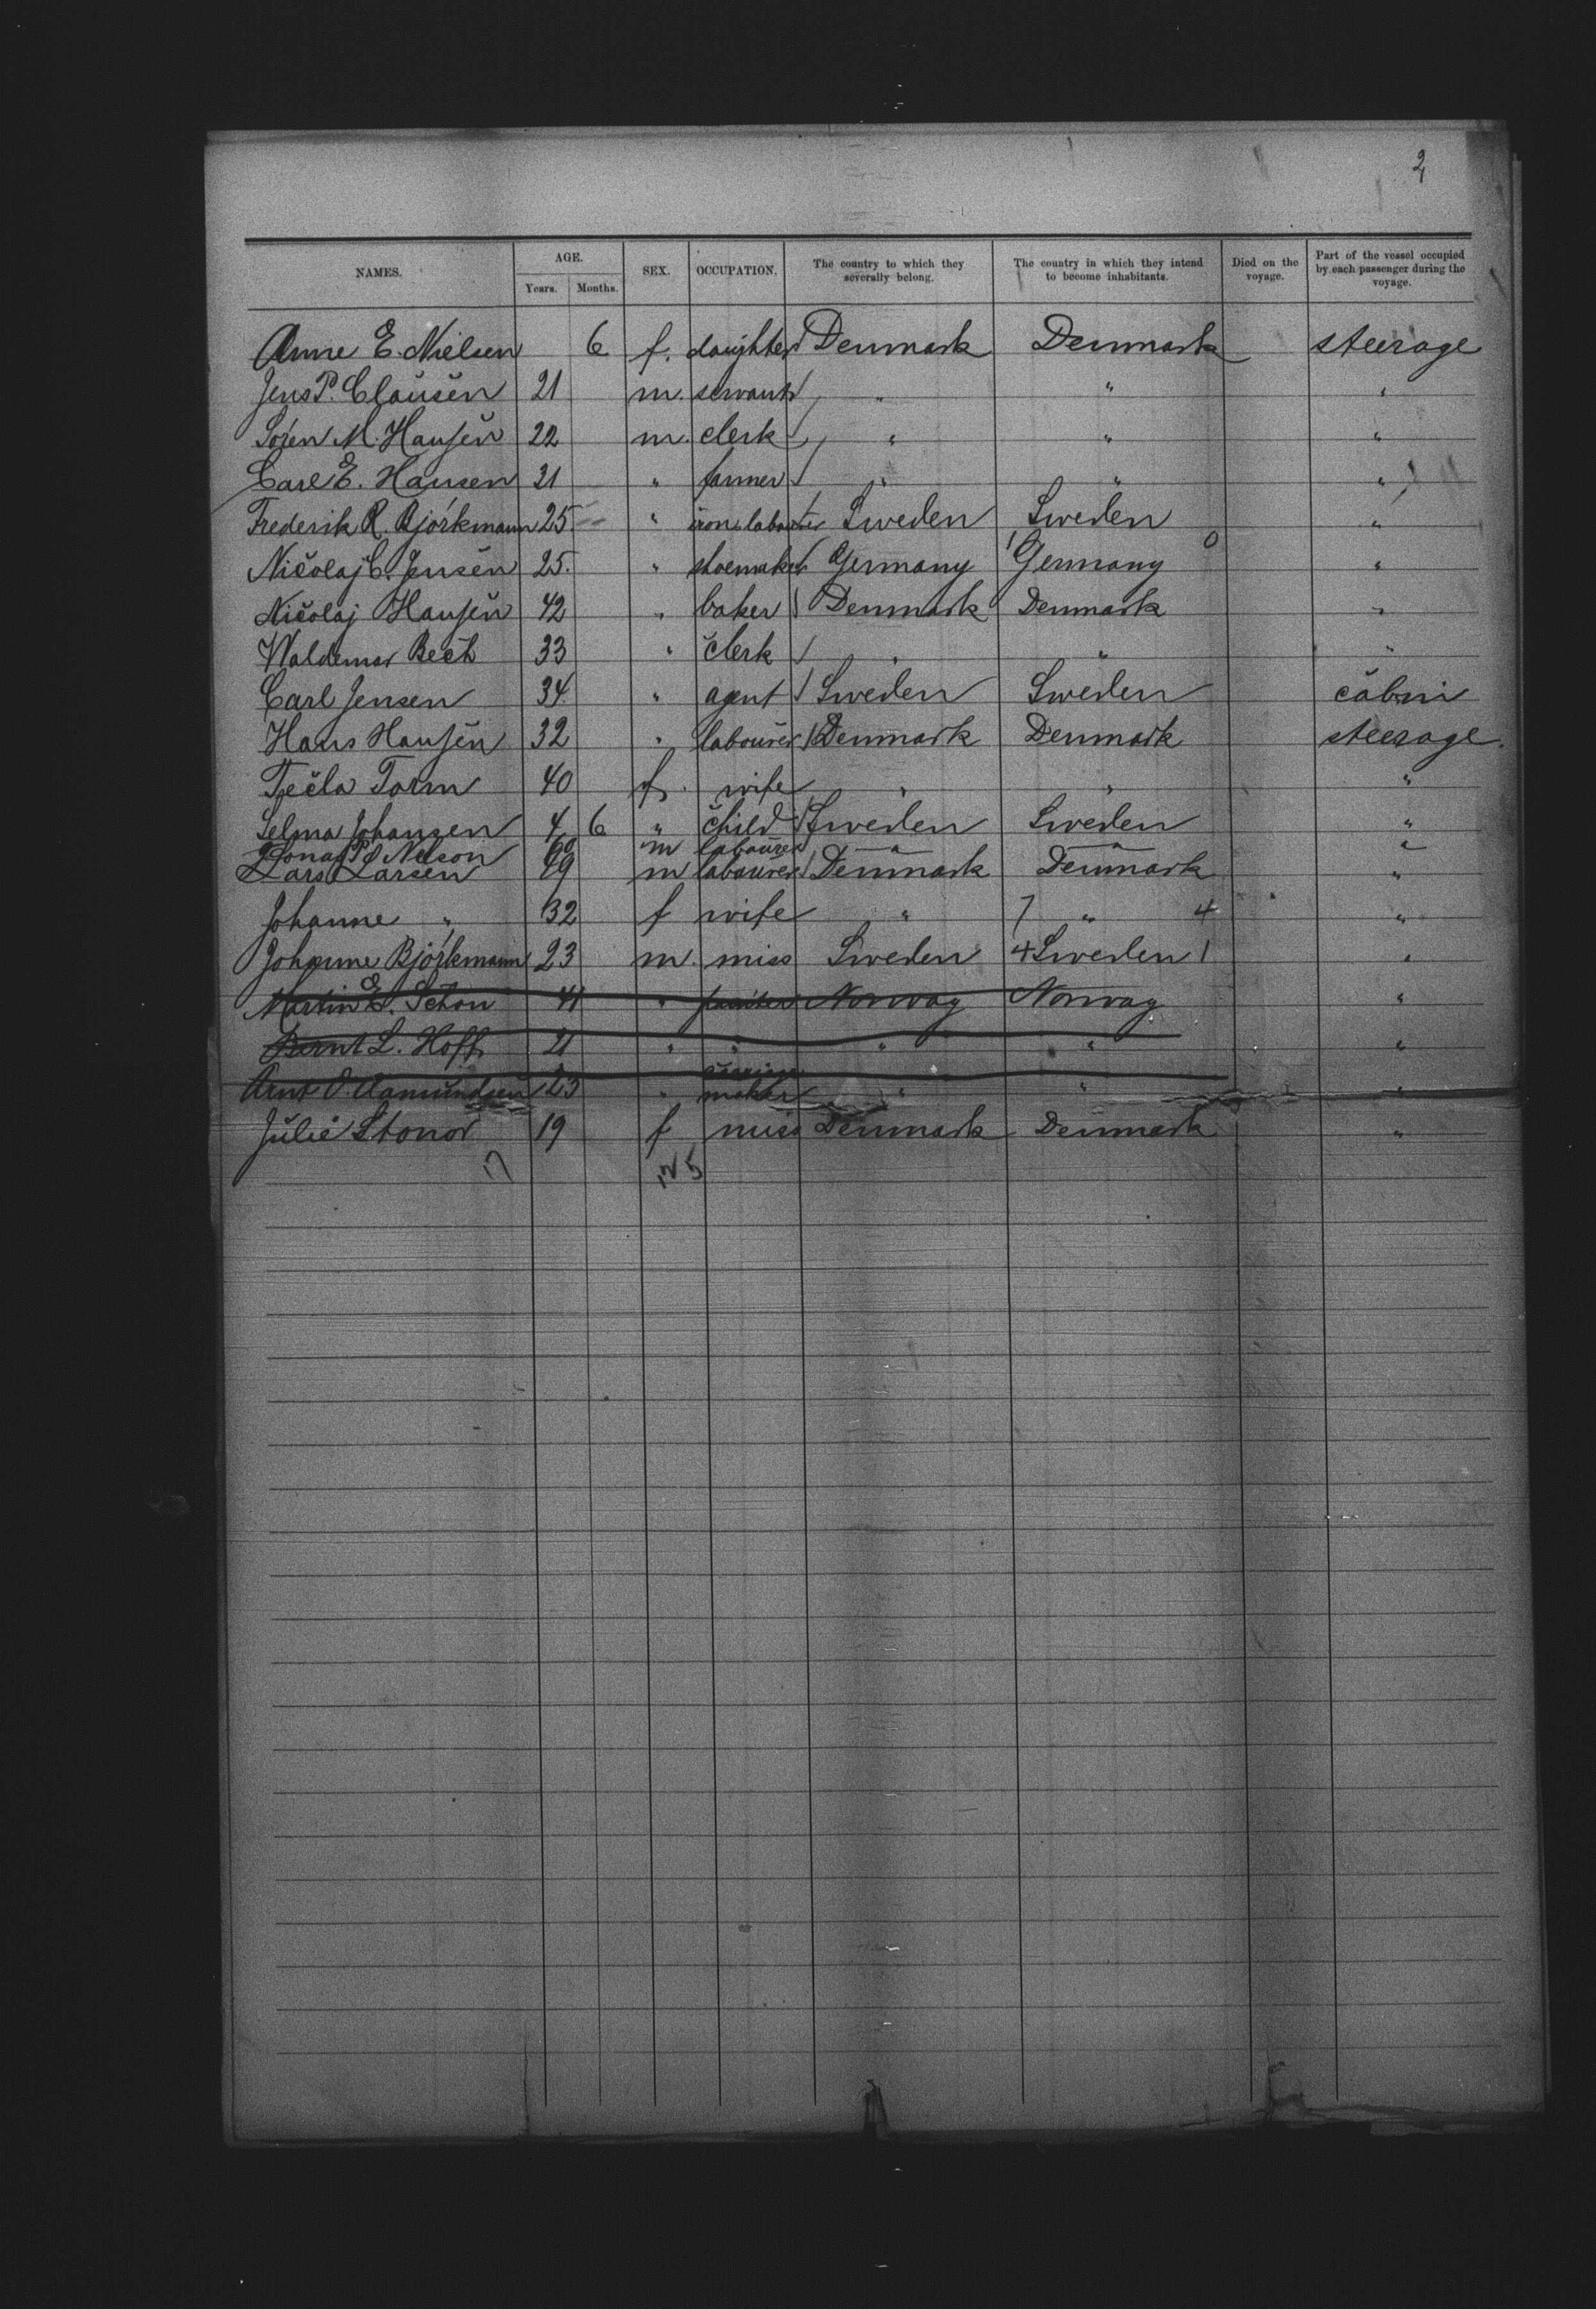 2
NAMES. AGE. Years. Months. SEX. OCCUPATION. The country to which they severally belong. The country in which they intend to become inhabitants. Died on the voyage. Part of the vessel occupied by each passenger during the voyage.
Anne E. Nielsen 6 f. daughter Denmark Denmark steerage
Jens P. Clausen 21 m. servant " " "
Sören M. Hansen 22 m. clerk " " "
Carl E. Hansen 21 " farmer " " "
Frederik R. Björkmann 25 " iron labourer Sweden Sweden "
Nicolaj C. Jensen 25. " shoemaker Germany 1 Germany 0 "
Nicolaj Hansen 42 " baker Denmark Denmark "
Waldemar Bech 33 " clerk " " "
Carl Jensen 34 " agent Sweden Sweden cabin
Hans Hansen 32 " labourer Denmark Denmark steerage.
Tecla Torm 40 f. wife " " "
Selma Johansen 4 6 " child Sweden Sweden "
Jonas P. Nelson 60 m labourer " " "
Lars Larsen 49 m labourer Denmark Denmark "
Johanne " 32 f wife " 7 " 4 "
Johanne Björkmann 23 m. miss Sweden 4 Sweden 1 "
Martin E. Schou 41 " Norway Norway "
Bernt L. Hoff 21 " " " " "
Arnt O. Aamundsen 23 " maker " " "
Julie Stonor 19 f miss Denmark Denmark "
17 12 5